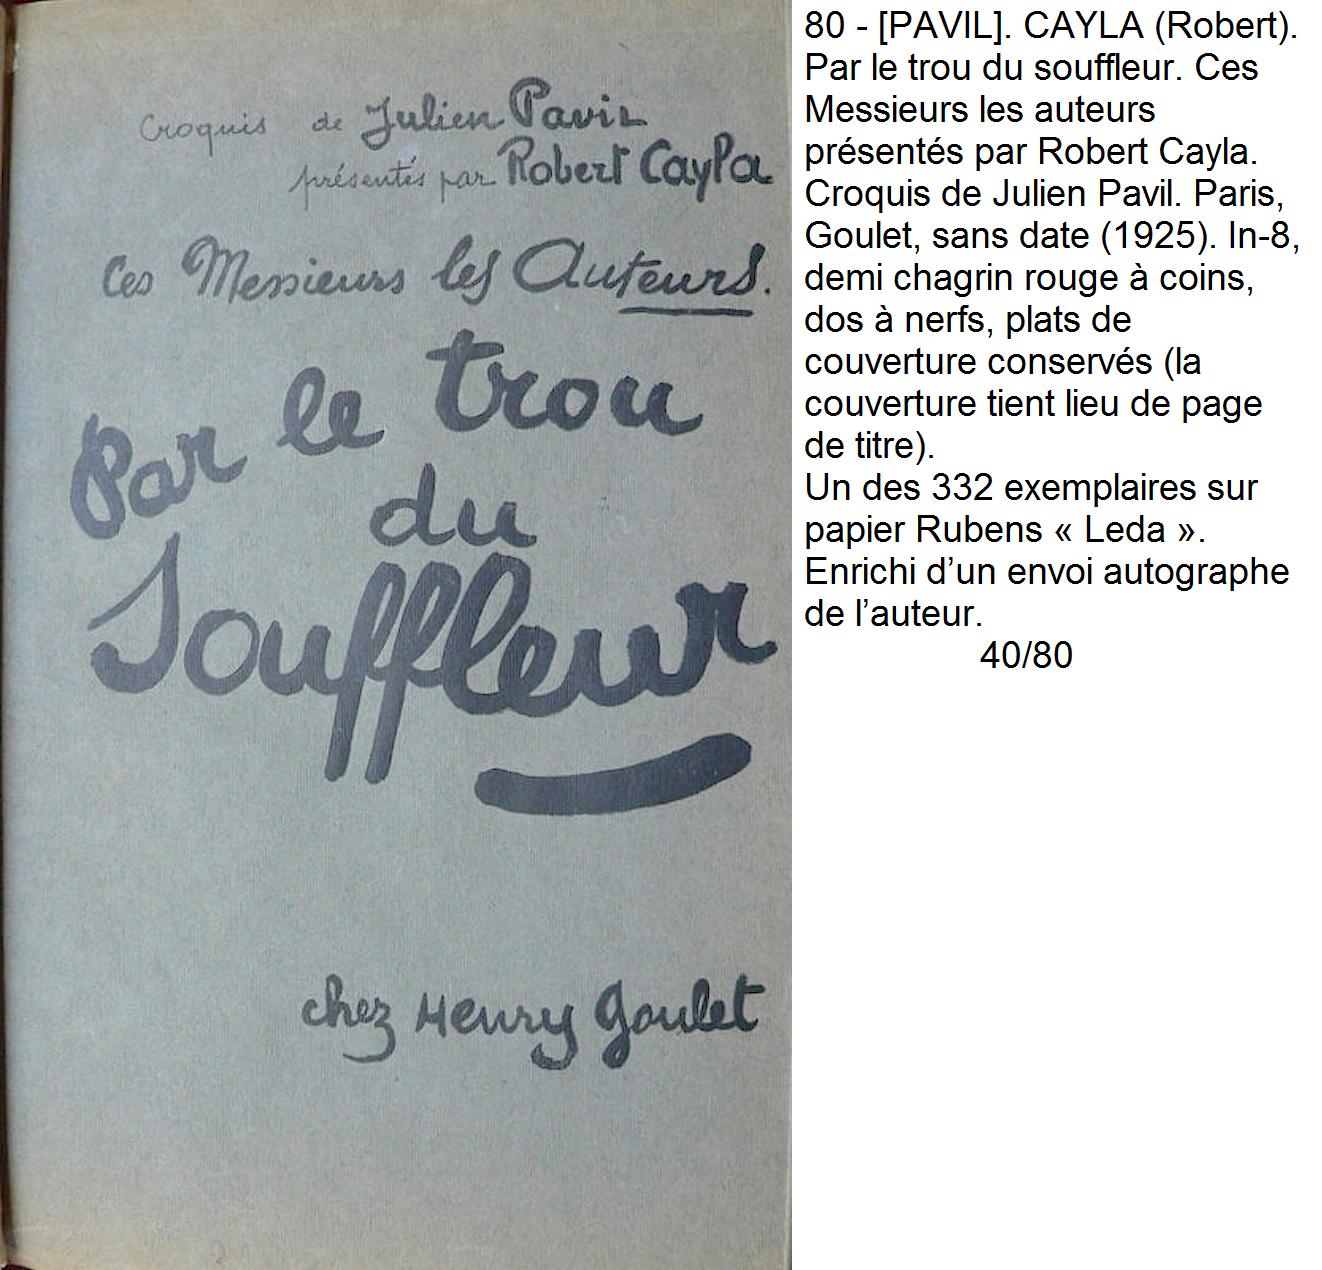 Croquis de Julien Pavil
présentés par Robert Cayla
Ces Messieurs les Auteurs.
Par le trou
du
Souffleur
chez Henry Goulet
80 - [PAVIL]. CAYLA (Robert).
Par le trou du souffleur. Ces
Messieurs les auteurs
présentés par Robert Cayla.
Croquis de Julien Pavil. Paris,
Goulet, sans date (1925). In-8,
demi chagrin rouge à coins,
dos à nerfs, plats de
couverture conservés (la
couverture tient lieu de page
de titre).
Un des 332 exemplaires sur
papier Rubens « Leda ».
Enrichi d’un envoi autographe
de l’auteur.
40/80